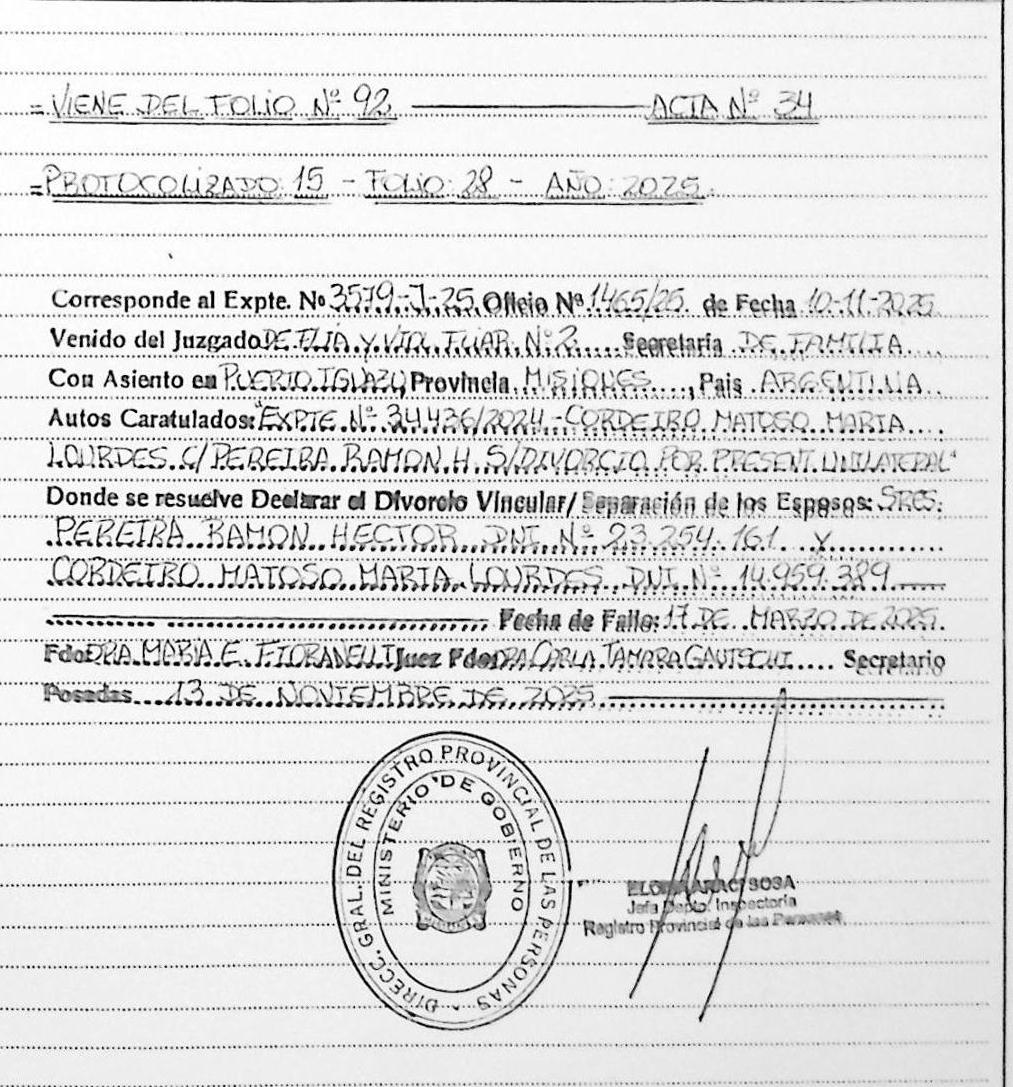 = VIENE DEL FOLIO Nº 92 ACTA Nº 34
= PROTOCOLIZADO: 15 - FOLIO: 28 - AÑO: 2025.
Corresponde al Expte. Nº 3579-J-25 Oficio Nº 1465/25 de Fecha 10-11-2025
Venido del Juzgado DE FLIA. Y VIOL. FLIAR. Nº 2 Secretaría DE FAMILIA
Con Asiento en PUERTO IGUAZU, Provincia MISIONES, País ARGENTINA
Autos Caratulados: "EXPTE. Nº 34.436/2024 - CORDEIRO MATOSO MARIA
LOURDES C/ PEREIRA RAMON H. S/ DIVORCIO POR PRESENT. UNILATERAL"
Donde se resuelve Declarar el Divorcio Vincular/ Separación de los Esposos: SRES.
PEREIRA RAMON HECTOR DNI Nº 23.254.161 Y
CORDEIRO MATOSO MARIA LOURDES DNI Nº 14.959.389
Fecha de Fallo: 17 DE MARZO DE 2025.
Fdo: DRA. MARIA E. FIORANELLI Juez Fdo: DRA. CARLA TAMARA GAUTSCHI Secretario
Posadas 13 DE NOVIEMBRE DE 2025
DIRECC. GRAL. DEL REGISTRO PROVINCIAL DE LAS PERSONAS
MINISTERIO DE GOBIERNO
SOSA
Jefa Depto. Inspectoría
Registro Provincial de las Personas